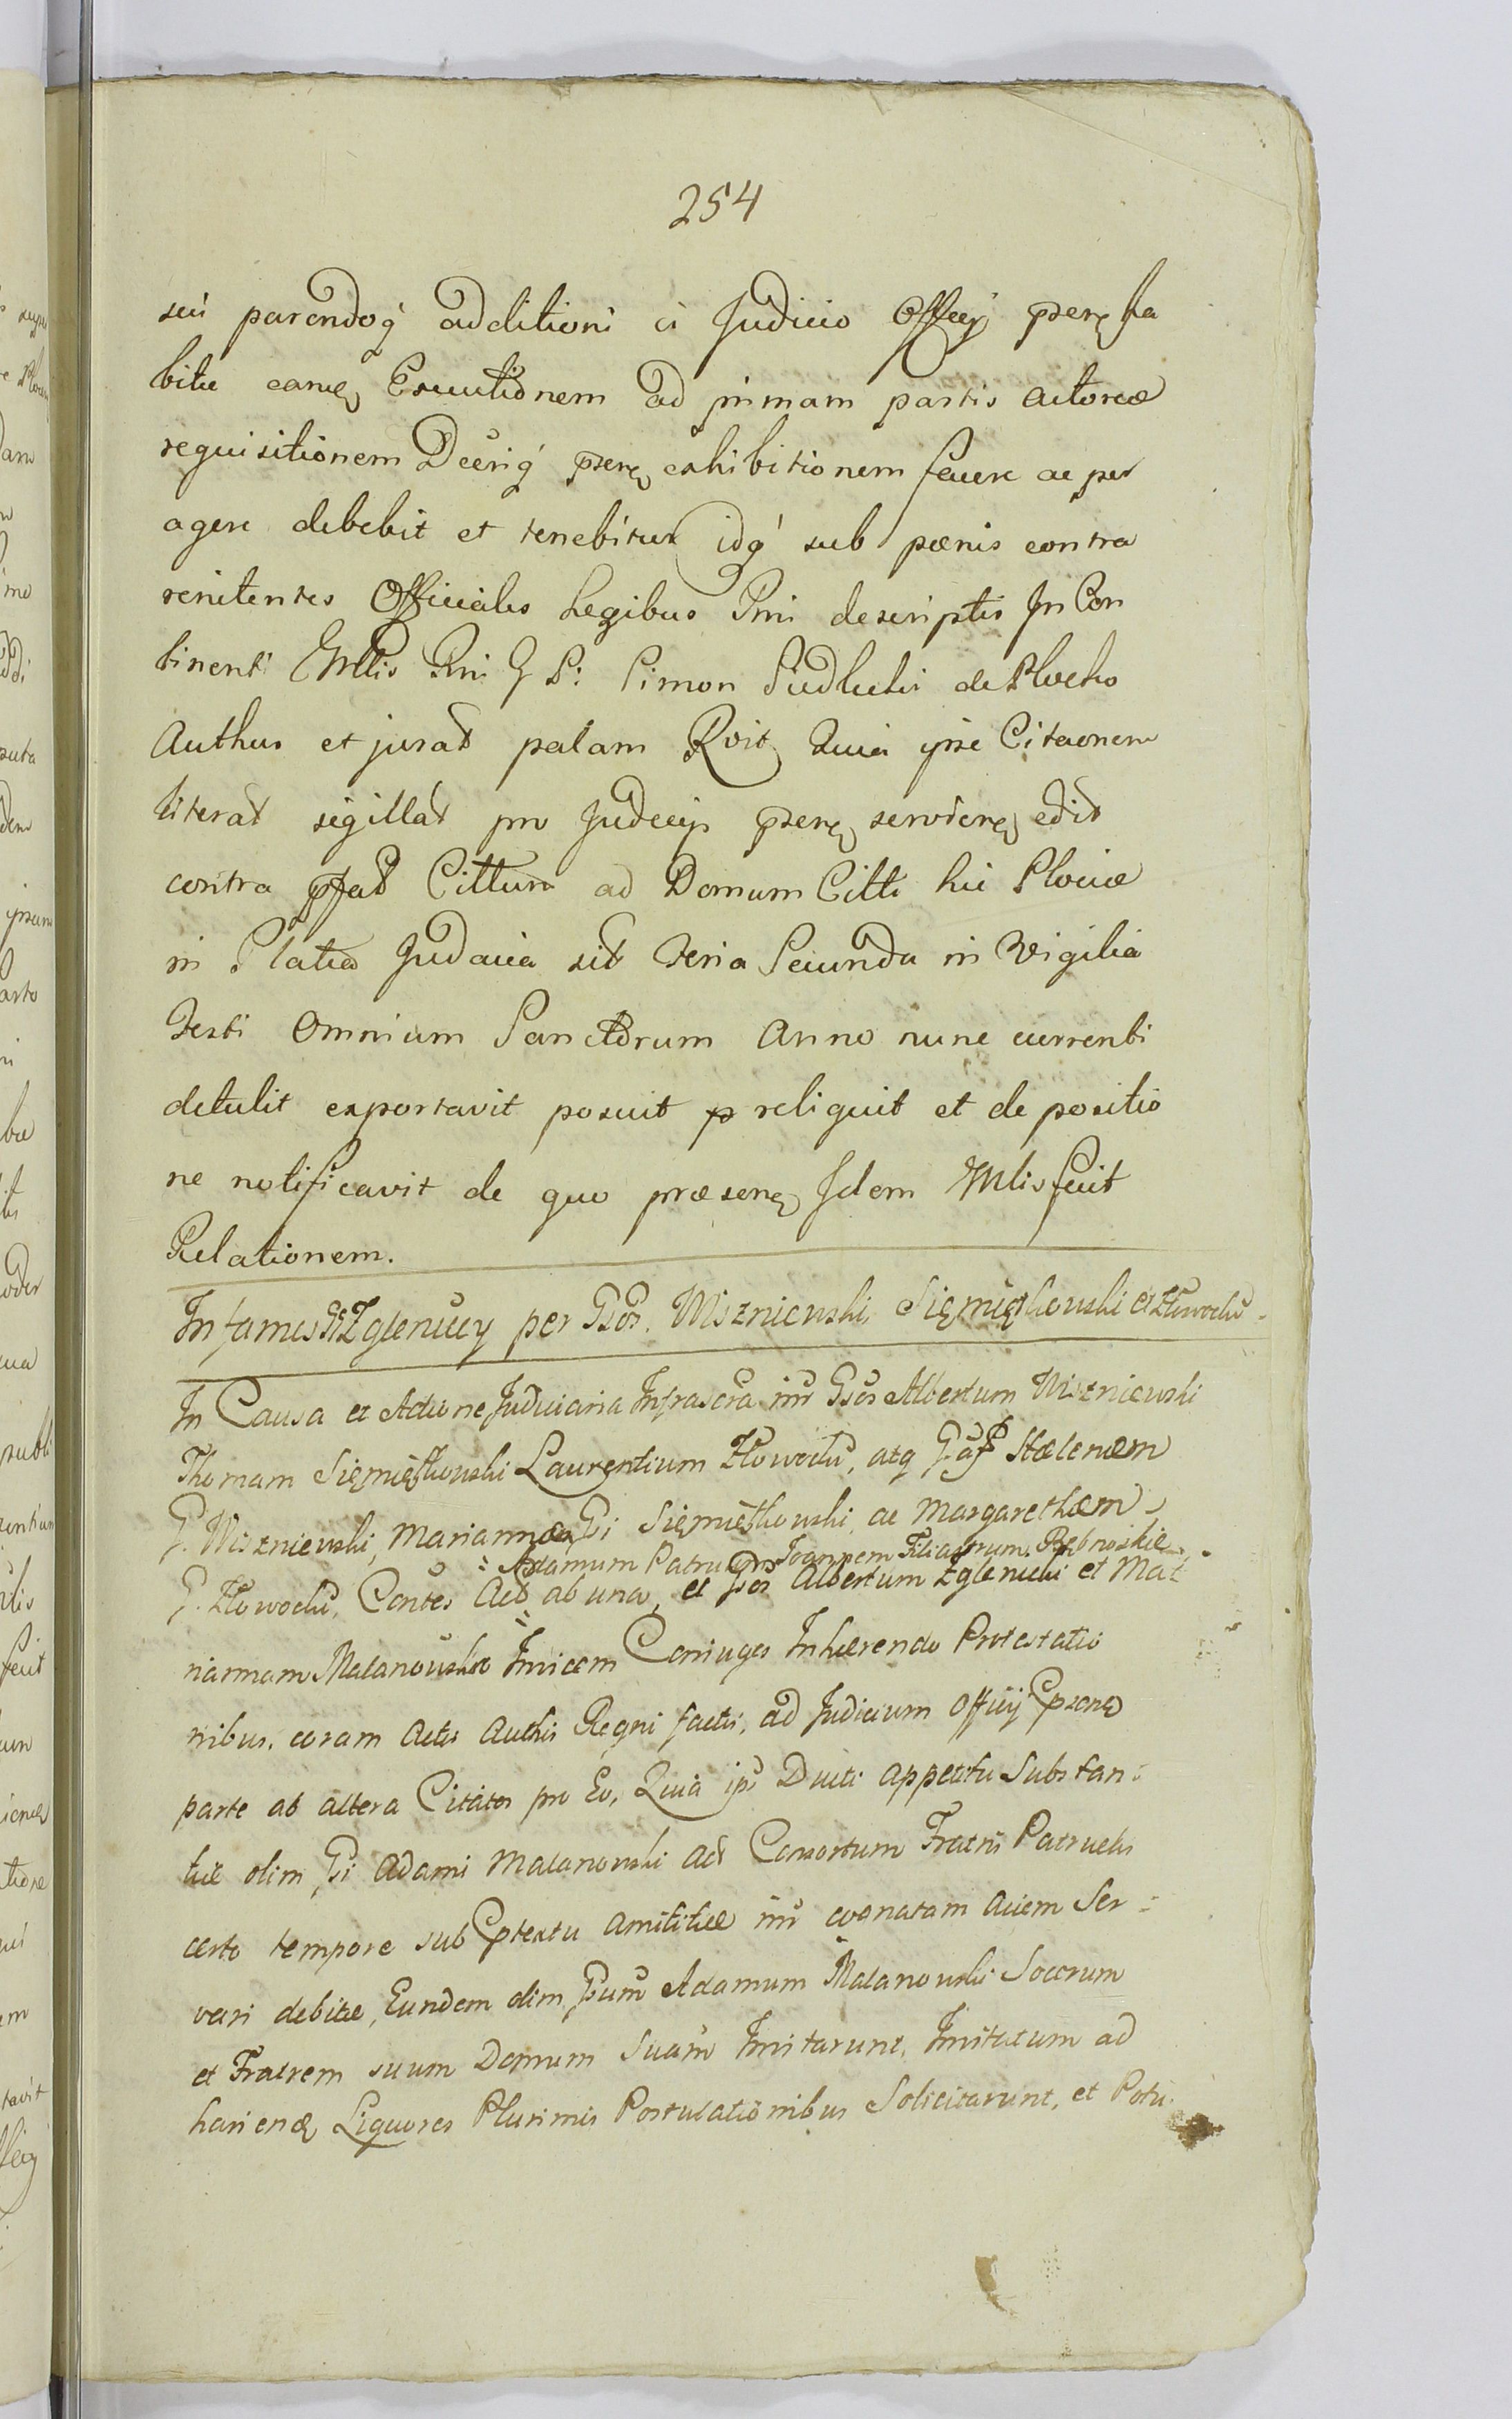 254
sui parendoq́ additioni ci Judicio Officij pserą ha
bitæ eamą Executionem ad primam partis actoreæ
requisitionem Decriq́ pserą exhibitionem facere ac per
agere debebit et tenebitur idq́ sub pœnis contra
renitentes Officiales Legibus Rni descriptis In Con
tinenti Mtlis Rni G S: Simon Siedlecki de Plocko
Authus et jurat palam Rvit Quia ipse Citaonem
literat sigillat pro Judicijs pserą servieną edit
contra pfat Cittum ad Domum Citti hic Plociæ
in Platea Judaica sit Feria Secunda in Vigilia
Festi Omnium Sanctorum Anno nunc currenti
detulit exportavit posuit reliquit et de positio
ne notificavit de quo præseną Idem Mtlis fecit
Relationem.
Infames Zgleniccy per Gsos. Wiszniewski, Siemiątkowski et Złowocki
In Causa et Actione Judiciaria Infrascra intr Gsos Albertum Wiszniewski
Thomam Siemiątkowski Laurentium Złowocki, atq Gas Helenem
G. Wiszniewski, Mariannæ Gi Siemiątkowski, ac Margarethæm
Adamum Patruum Joannem Filiastrum Rębowskie
G. Złowocki, Contes Act ab una, et Gsos Albertum Zglenicki et Ma
riannam Malanowska Invicem Coniuges Inhærendo Protestatio
nibus, coram Actis Authis Regni factis, ad Judicium Officij Psenes
parte ab altera Citatos pro Eo, Quia ipsi Ducti appetitu Substan
tiæ olim Gi Adami Malanowski Act Consortum Fratris Patruelis
certo tempore sub Ptextu amicitiæ intr cognatam aciem Ser
vari debitæ, Eundem olim Gsum Adamum Malanowski Socerum
et Fratrem suum Domum Suam Invitarunt, Invitatum ad
hauriendos Liquores Plurimis Postulationibus Solicitarunt, et Potu